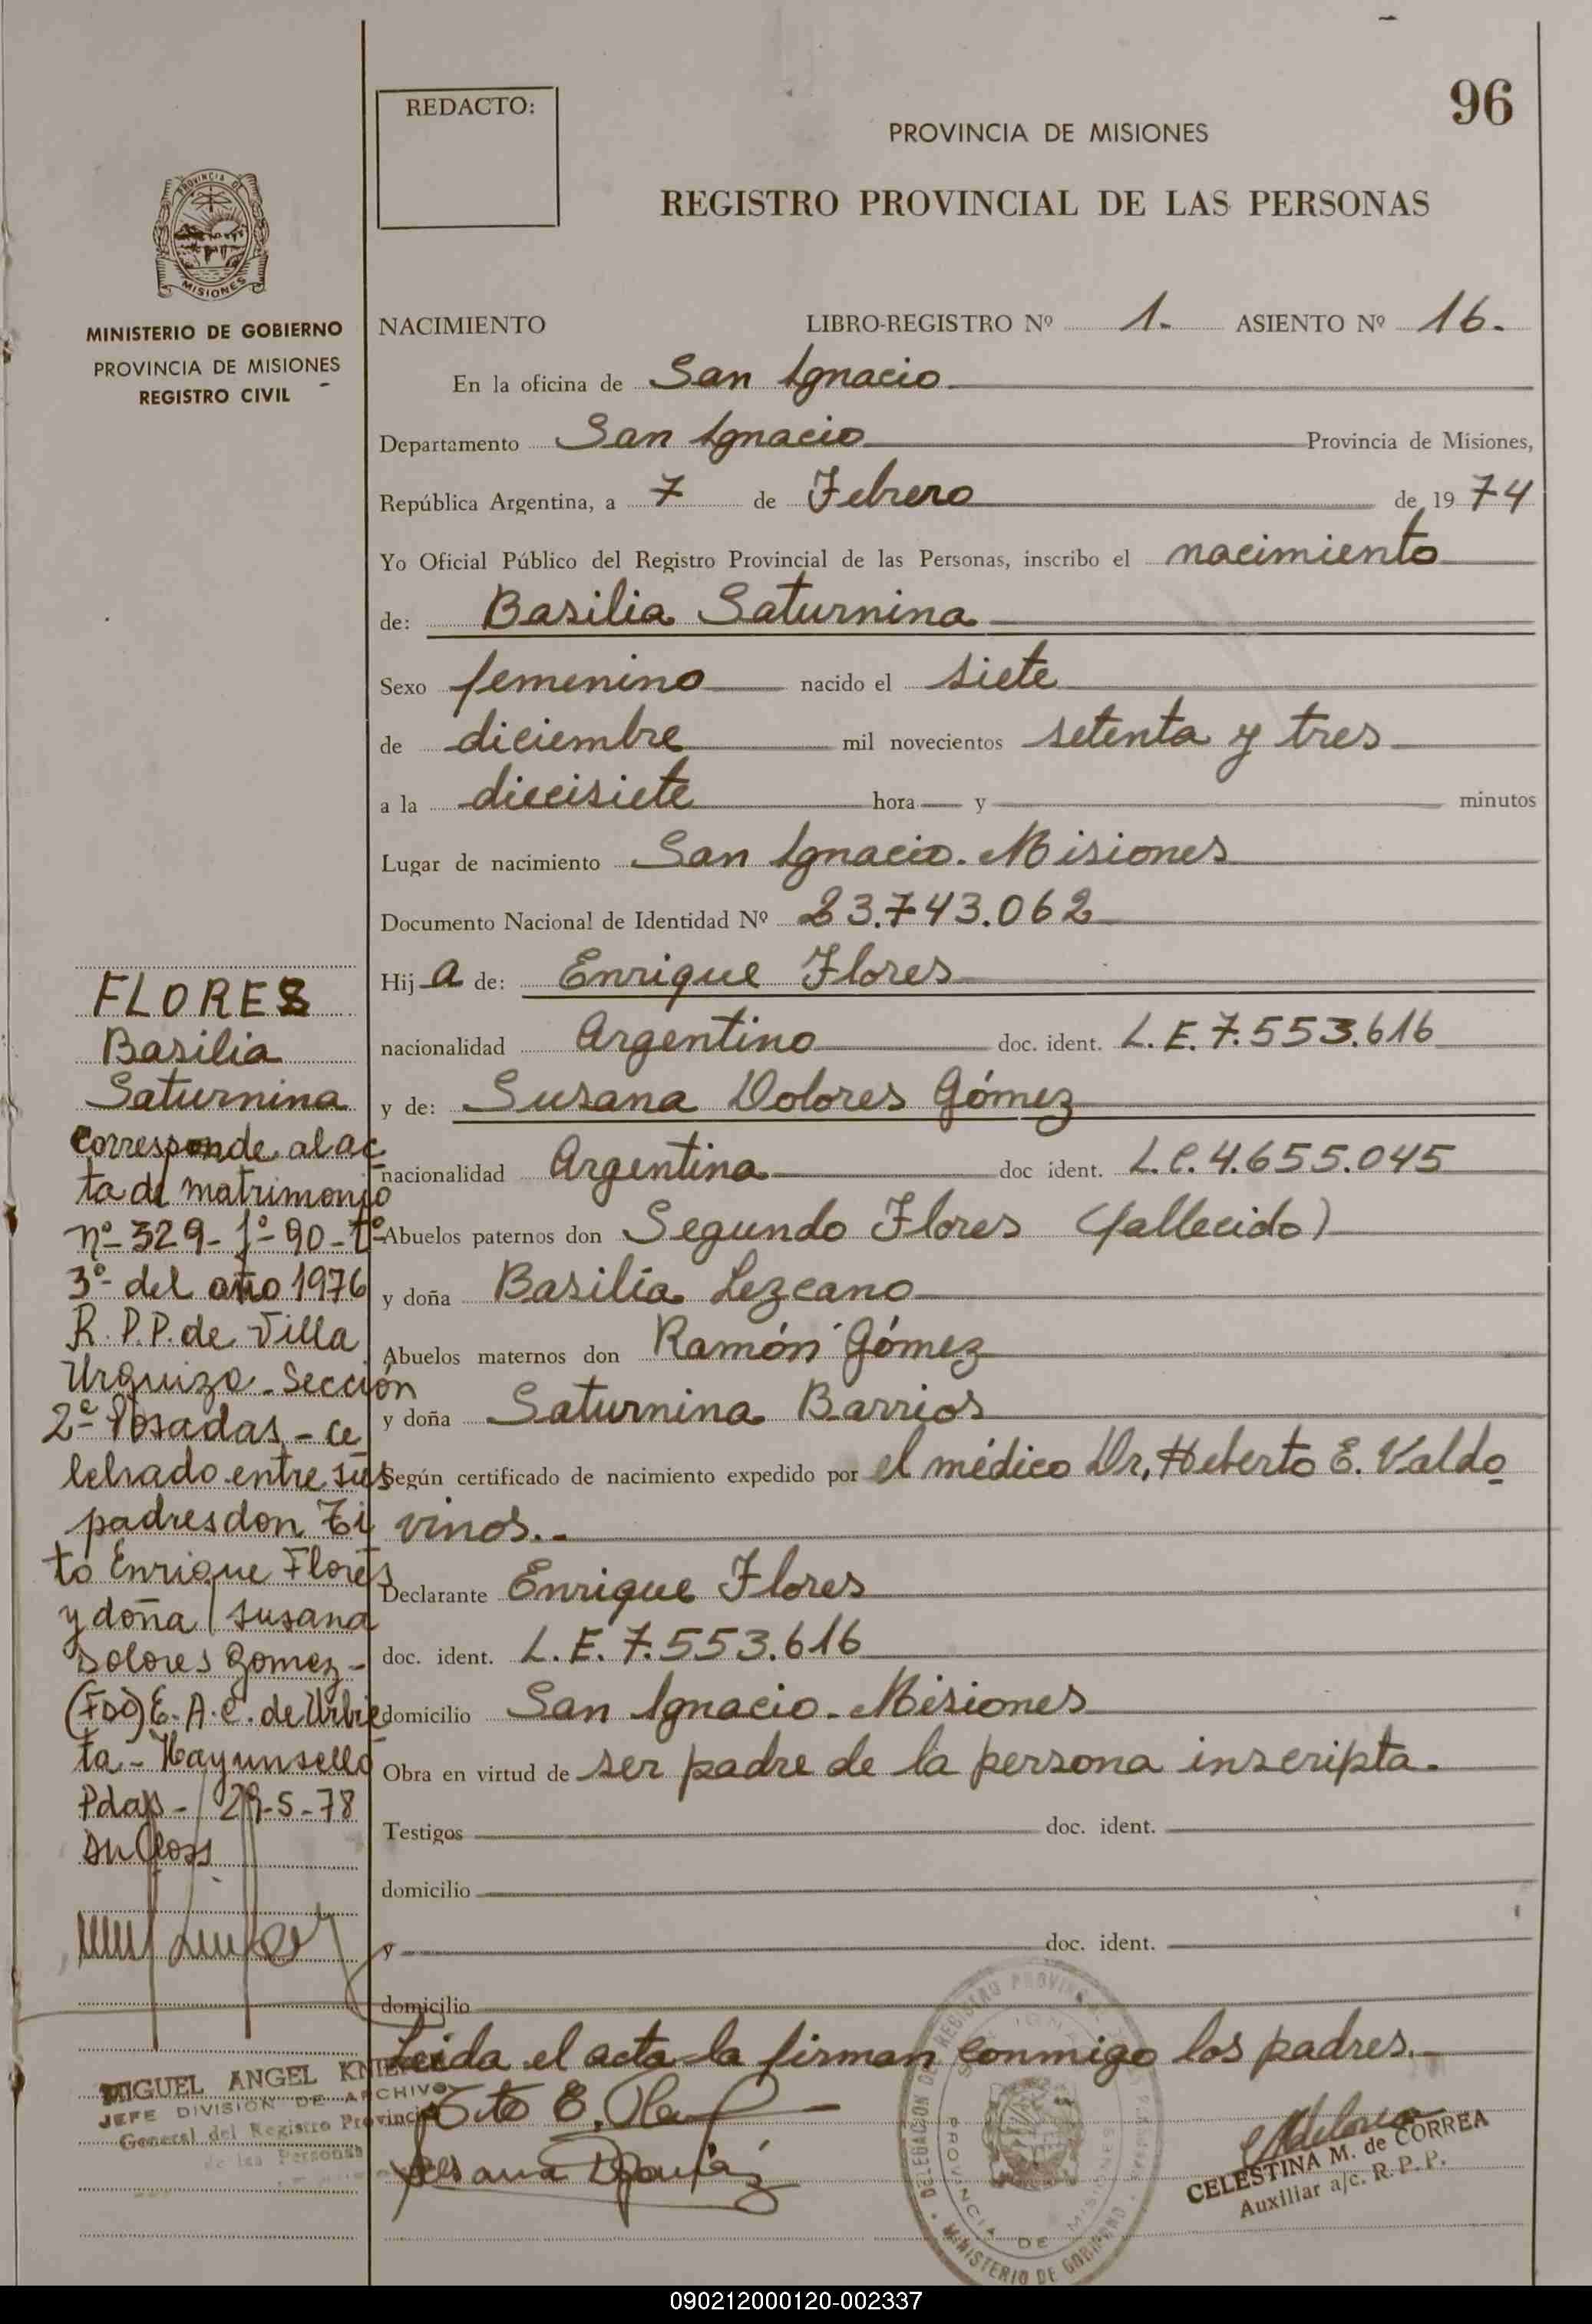 96
REDACTO:
PROVINCIA DE MISIONES
REGISTRO PROVINCIAL DE LAS PERSONAS
PROVINCIA DE
MISIONES
MINISTERIO DE GOBIERNO
PROVINCIA DE MISIONES
REGISTRO CIVIL
NACIMIENTO LIBRO-REGISTRO Nº 1. ASIENTO Nº 16.
En la oficina de San Ignacio
Departamento San Ignacio Provincia de Misiones,
República Argentina, a 7 de Febrero de 1974
Yo Oficial Público del Registro Provincial de las Personas, inscribo el nacimiento
de: Basilia Saturnina
Sexo femenino nacido el siete
de diciembre mil novecientos setenta y tres
a la diecisiete hora y minutos
Lugar de nacimiento San Ignacio. Misiones
Documento Nacional de Identidad Nº 23.743.062
Hija de: Enrique Flores
nacionalidad Argentino doc. ident. L.E. 7.553.616
y de: Susana Dolores Gómez
nacionalidad Argentina doc ident. L.C. 4.655.045
Abuelos paternos don Segundo Flores (fallecido)
y doña Basilia Lezcano
Abuelos maternos don Ramón Gómez
y doña Saturnina Barrios
Según certificado de nacimiento expedido por el médico Dr, Heberto E. Valdo
vinos..-
Declarante Enrique Flores
doc. ident. L.E. 7.553.616
domicilio San Ignacio - Misiones
Obra en virtud de ser padre de la persona inscripta.
Testigos doc. ident.
domicilio
y doc. ident.
domicilio
Leida el acta la firman conmigo los padres.
Tito E.
CELESTINA M. de CORREA
Auxiliar a/c. R.P.P.
DELEGACION DE REGISTRO
PROVINCIA DE MISIONES
MINISTERIO DE GOBIERNO
FLORES
Basilia
Saturnina
Corresponde al ac
ta de matrimonio
nº 329- fº 90- tº
3º del año 1976
R.P.P. de Villa
Urquiza - Sección
2ª Posadas - ce
lebrado entre sus
padres don Ti
to Enrique Flores
y doña Susana
Dolores Gomez -
(Fdo) E.A.C. de Urbie
ta - Hay un sello
Pdas - 29-5-78
MIGUEL ANGEL
JEFE DIVISION DE ARCHIVO
General del Registro Provincial
de las Personas
090212000120-002337